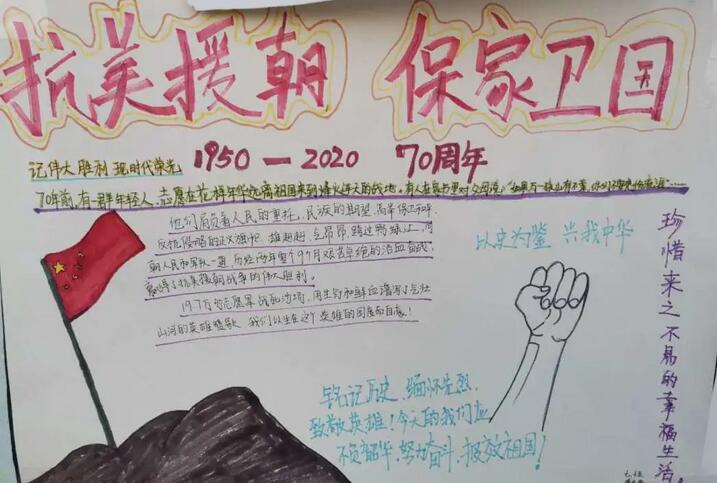 抗美援朝 保家卫国
记伟大胜利 现时代荣光 1950—2020 70周年
70年前,有一群年轻人,志愿在花样年华远离祖国来到烽火连天的战地。有人在家书里对父母说:"如果有一
他们肩负着人民的重托,民族的期望,高举保卫和平
反抗侵略的正义旗帜,雄赳赳,气昂昂,跨过鸭绿江,同
朝人民和军队一道 历经两年零9个月艰苦卓绝的浴血奋战,
赢得了抗美援朝战争的伟大胜利。
19.7万志愿军战死沙场,用生命和鲜血谱写了气壮
山河的英雄赞歌 我们以生在这个英雄的国度而自豪!
以史为鉴 兴我中华
铭记历史,缅怀先烈,
致敬英雄!今天的我们应
不负韶华,努力奋斗,报效祖国!
珍惜来之不易的幸福生活。